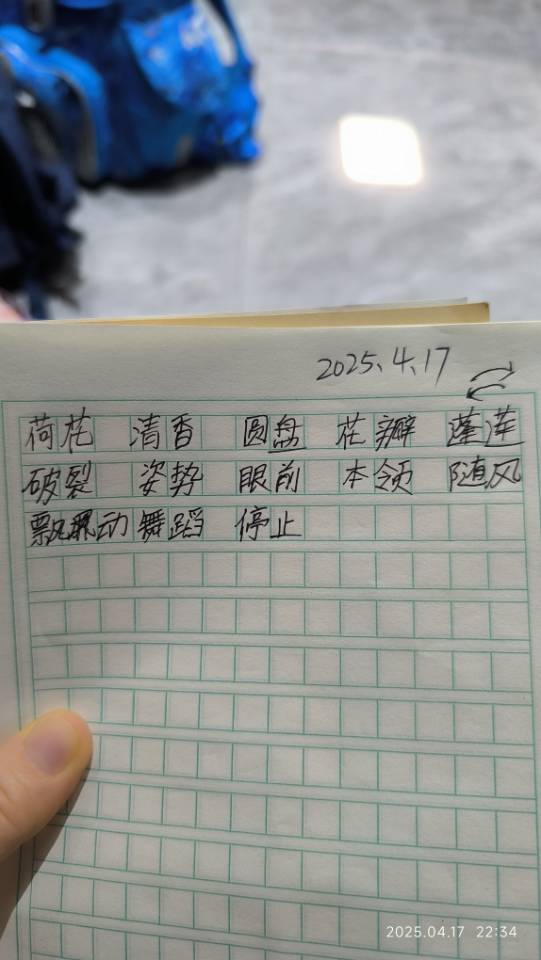 2025.4.17
荷花 清香 圆盘 花瓣 蓬莲
破裂 姿势 眼前 本领 随风
飘动 舞蹈 停止
2025.04.17 22:34